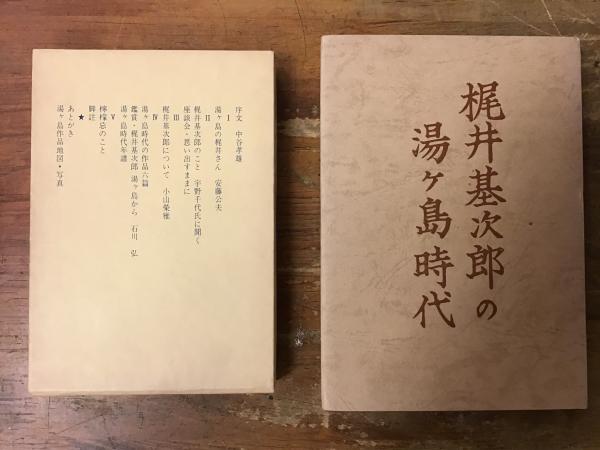 序文　中谷孝雄
Ⅰ
湯ヶ島の梶井さん　安藤公夫
Ⅱ
梶井基次郎のこと　宇野千代氏に聞く
座談会・思い出すままに
Ⅲ
梶井基次郎について　小山榮雅
Ⅳ
湯ヶ島時代の作品六篇
鑑賞・梶井基次郎　湯ヶ島から　石川　弘
湯ヶ島時代年譜
Ⅴ
檸檬忌のこと
脚註
★
あとがき
湯ヶ島作品地図・写真
梶井基次郎の
湯ヶ島時代